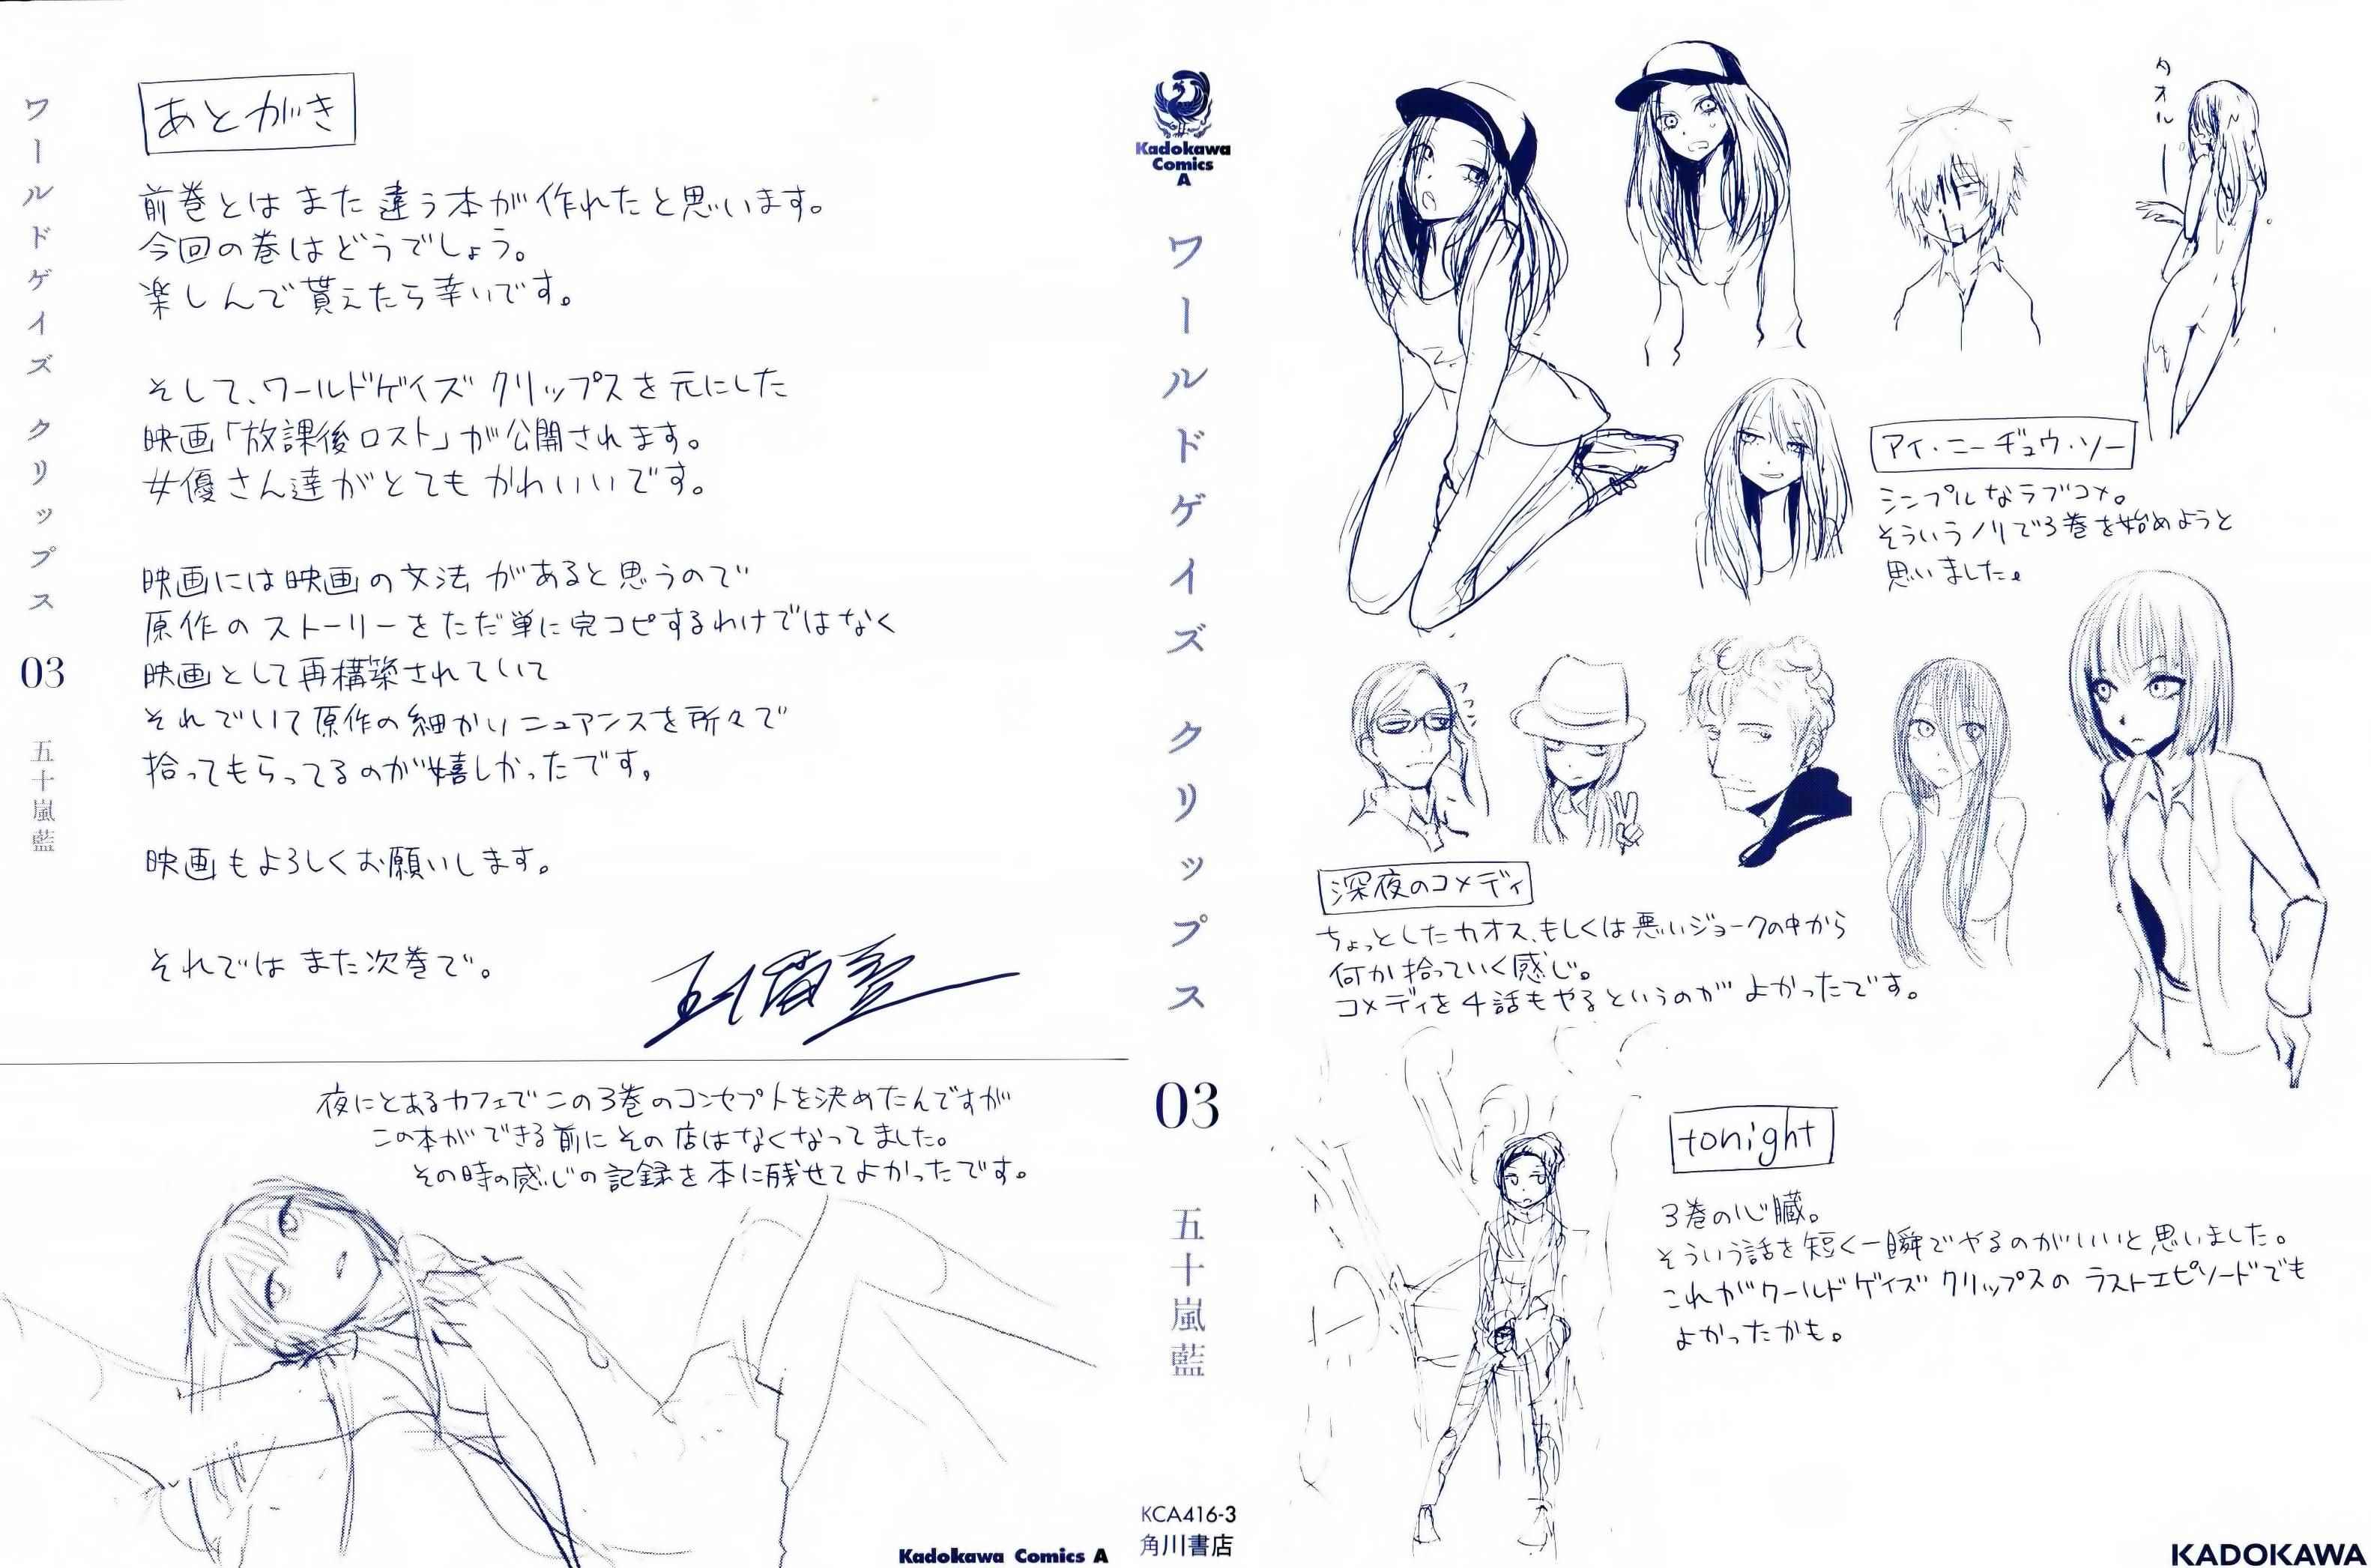 ワールドゲイズ クリップス
03
五十嵐藍
あとがき
前巻とはまた違う本が作れたと思います。
今回の巻はどうでしょう。
楽しんで貰えたら幸いです。
そして、ワールドゲイズ クリップスを元にした
映画「放課後ロスト」が公開されます。
女優さん達がとてもかわいいです。
映画には映画の文法があると思うので
原作のストーリーをただ単に完コピするわけではなく
映画として再構築されていて
それでいて原作の細かいニュアンスを所々で
拾ってもらってるのが嬉しかったです。
映画もよろしくお願いします。
それではまた次巻で。
夜にとあるカフェでこの3巻のコンセプトを決めたんですが
この本ができる前にその店はなくなってました。
その時の感じの記録を本に残せてよかったです。
Kadokawa Comics A
Kadokawa
Comics
A
ワールドゲイズ クリップス
03
五十嵐藍
KCA416-3
角川書店
タオルー
アイ・ニーヂュウ・ソー
シンプルなラブコメ。
そういうノリで3巻を始めようと
思いました。
フフン
深夜のコメディ
ちょっとしたカオス、もしくは悪いジョークの中から
何か拾っていく感じ。
コメディを4話もやるというのがよかったです。
tonight
3巻の心臓。
そういう話を短く一瞬でやるのがいいと思いました。
これがワールドゲイズ クリップスのラストエピソードでも
よかったかも。
KADOKAWA